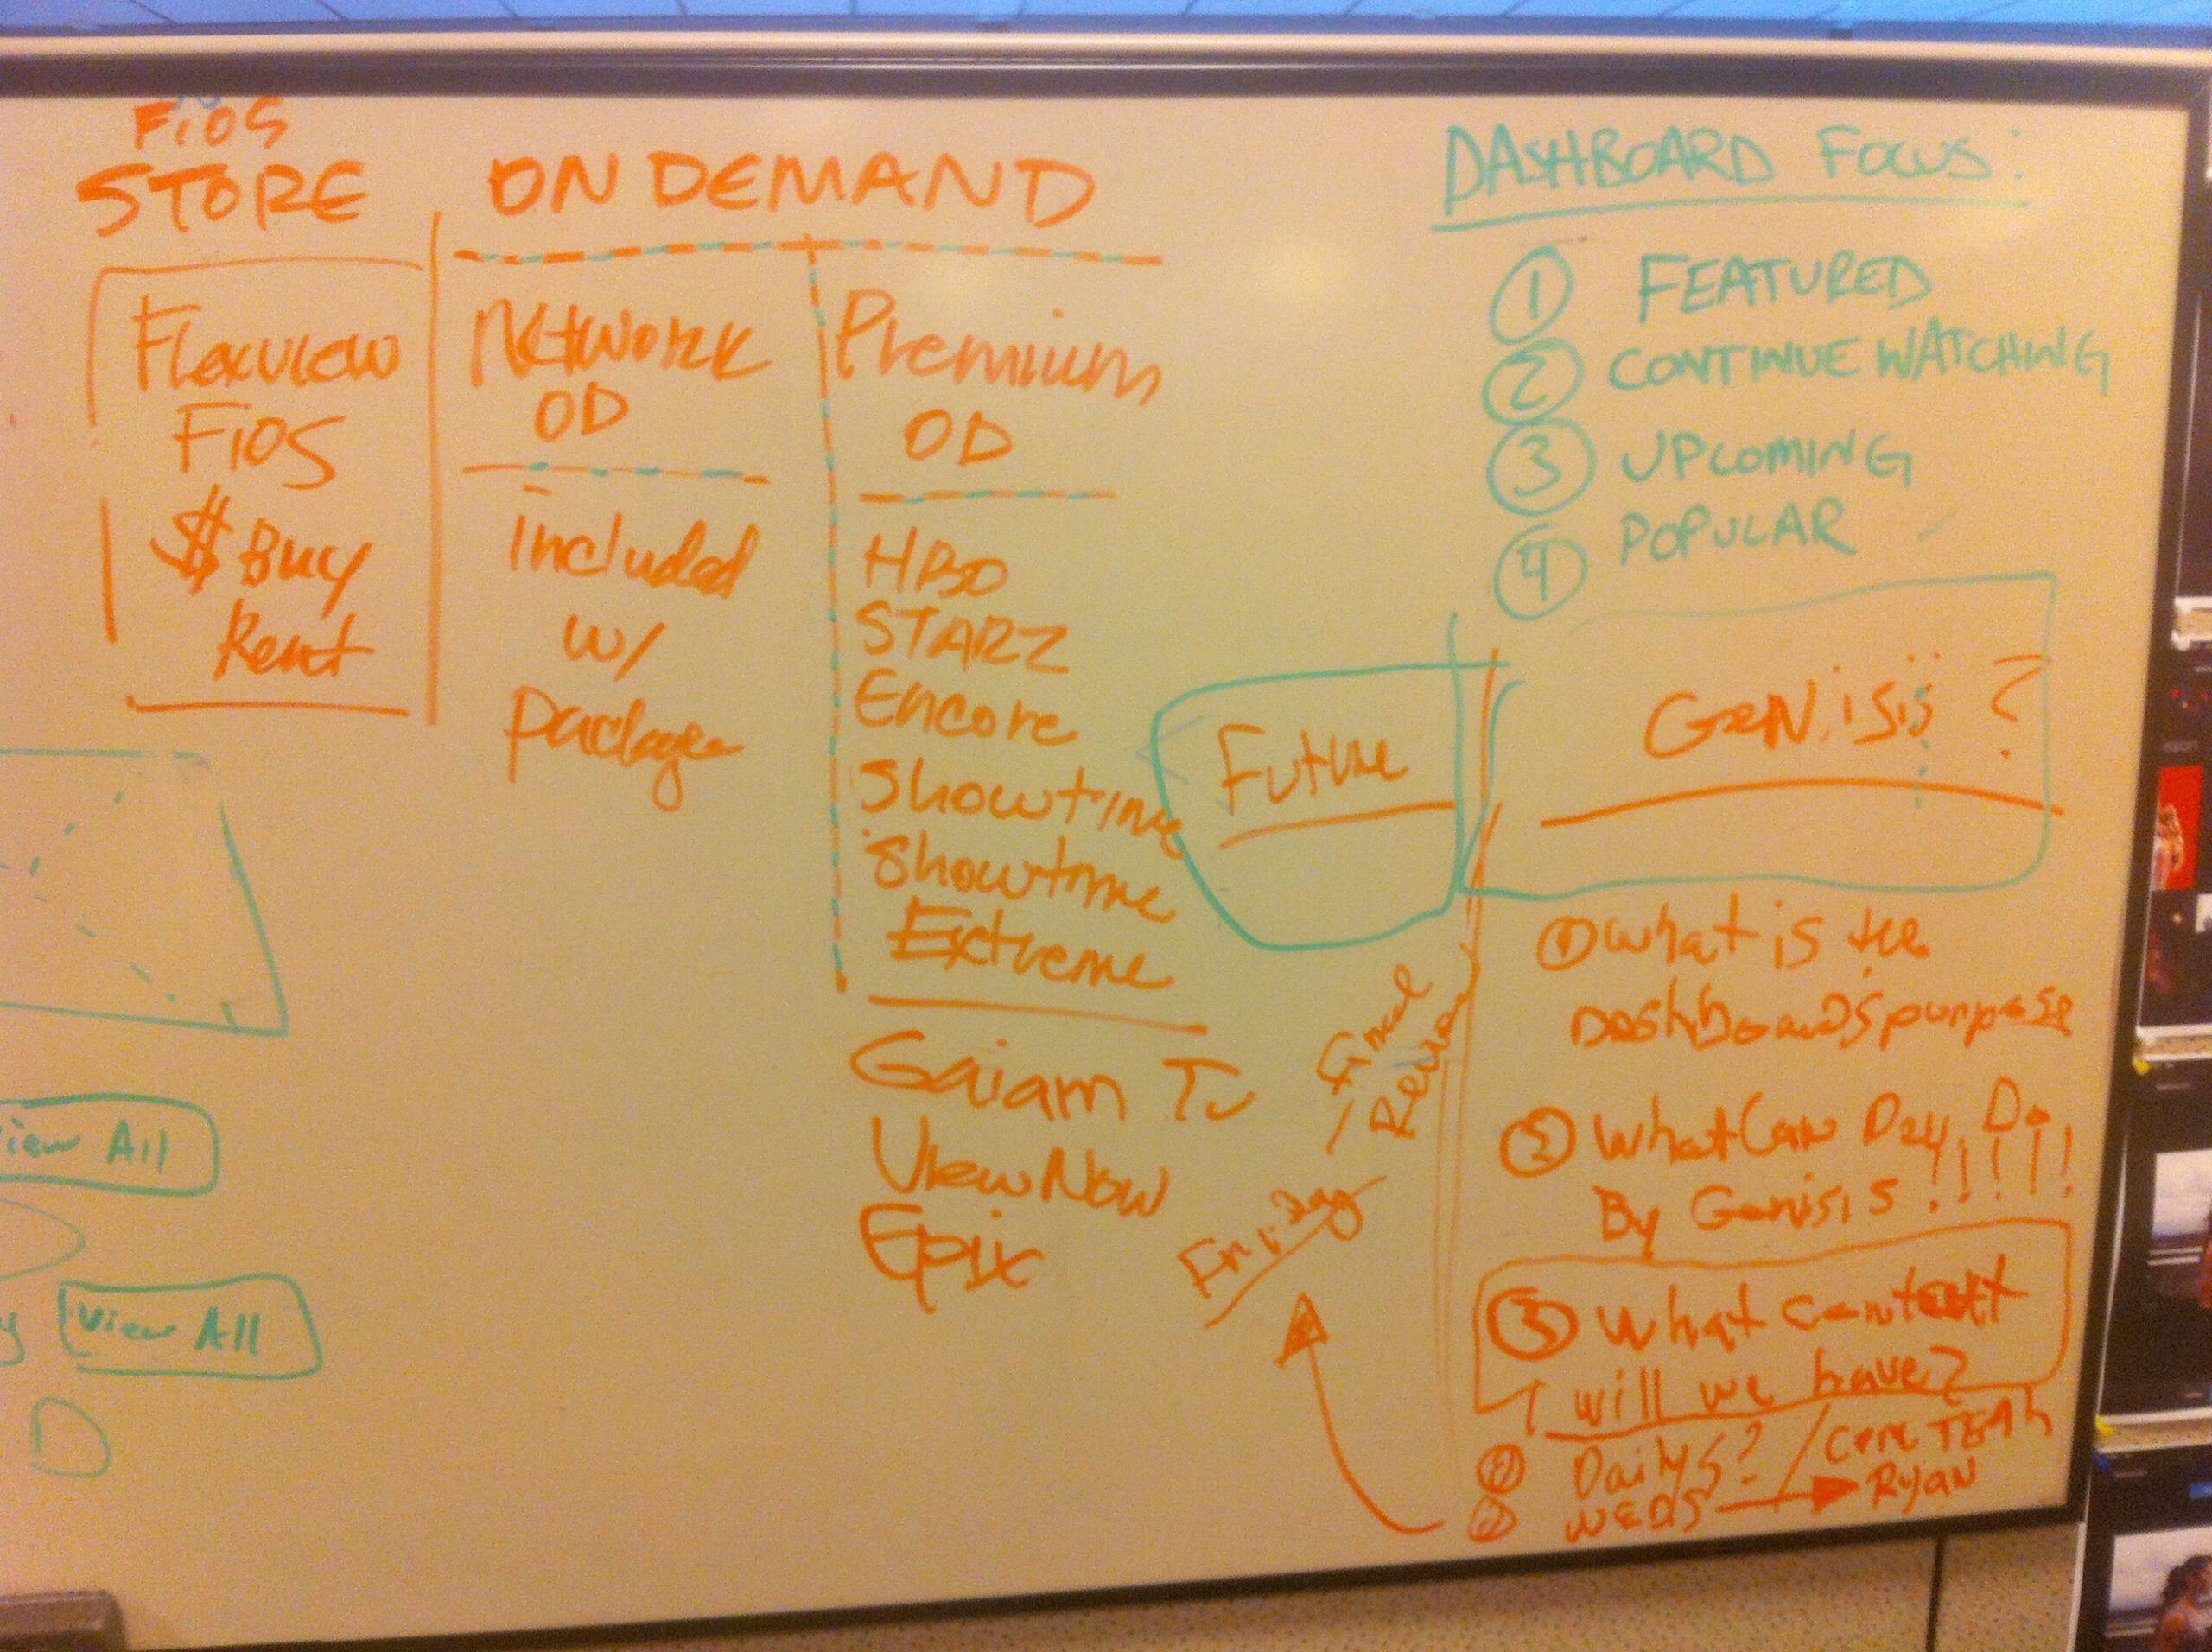 FiOS
STORE
Flexview
FiOS
$ Buy
Rent
ON DEMAND
Network
OD
included
w/
package
Premium
OD
HBO
STARZ
Encore
Showtime
Showtime
Extreme
Gaiam Tv
View Now
Epix
View All
View All
D
DASHBOARD FOCUS:
1 FEATURED
2 CONTINUE WATCHING
3 UPCOMING
4 POPULAR
Future
GENisis ?
① What is the
Dashboards purpose
② What Can Day. Do
By Genisis !!!!!
③ What content
will we have?
Dailys? / Core TEAM
WEDS → Ryan
Friday
Final
Review